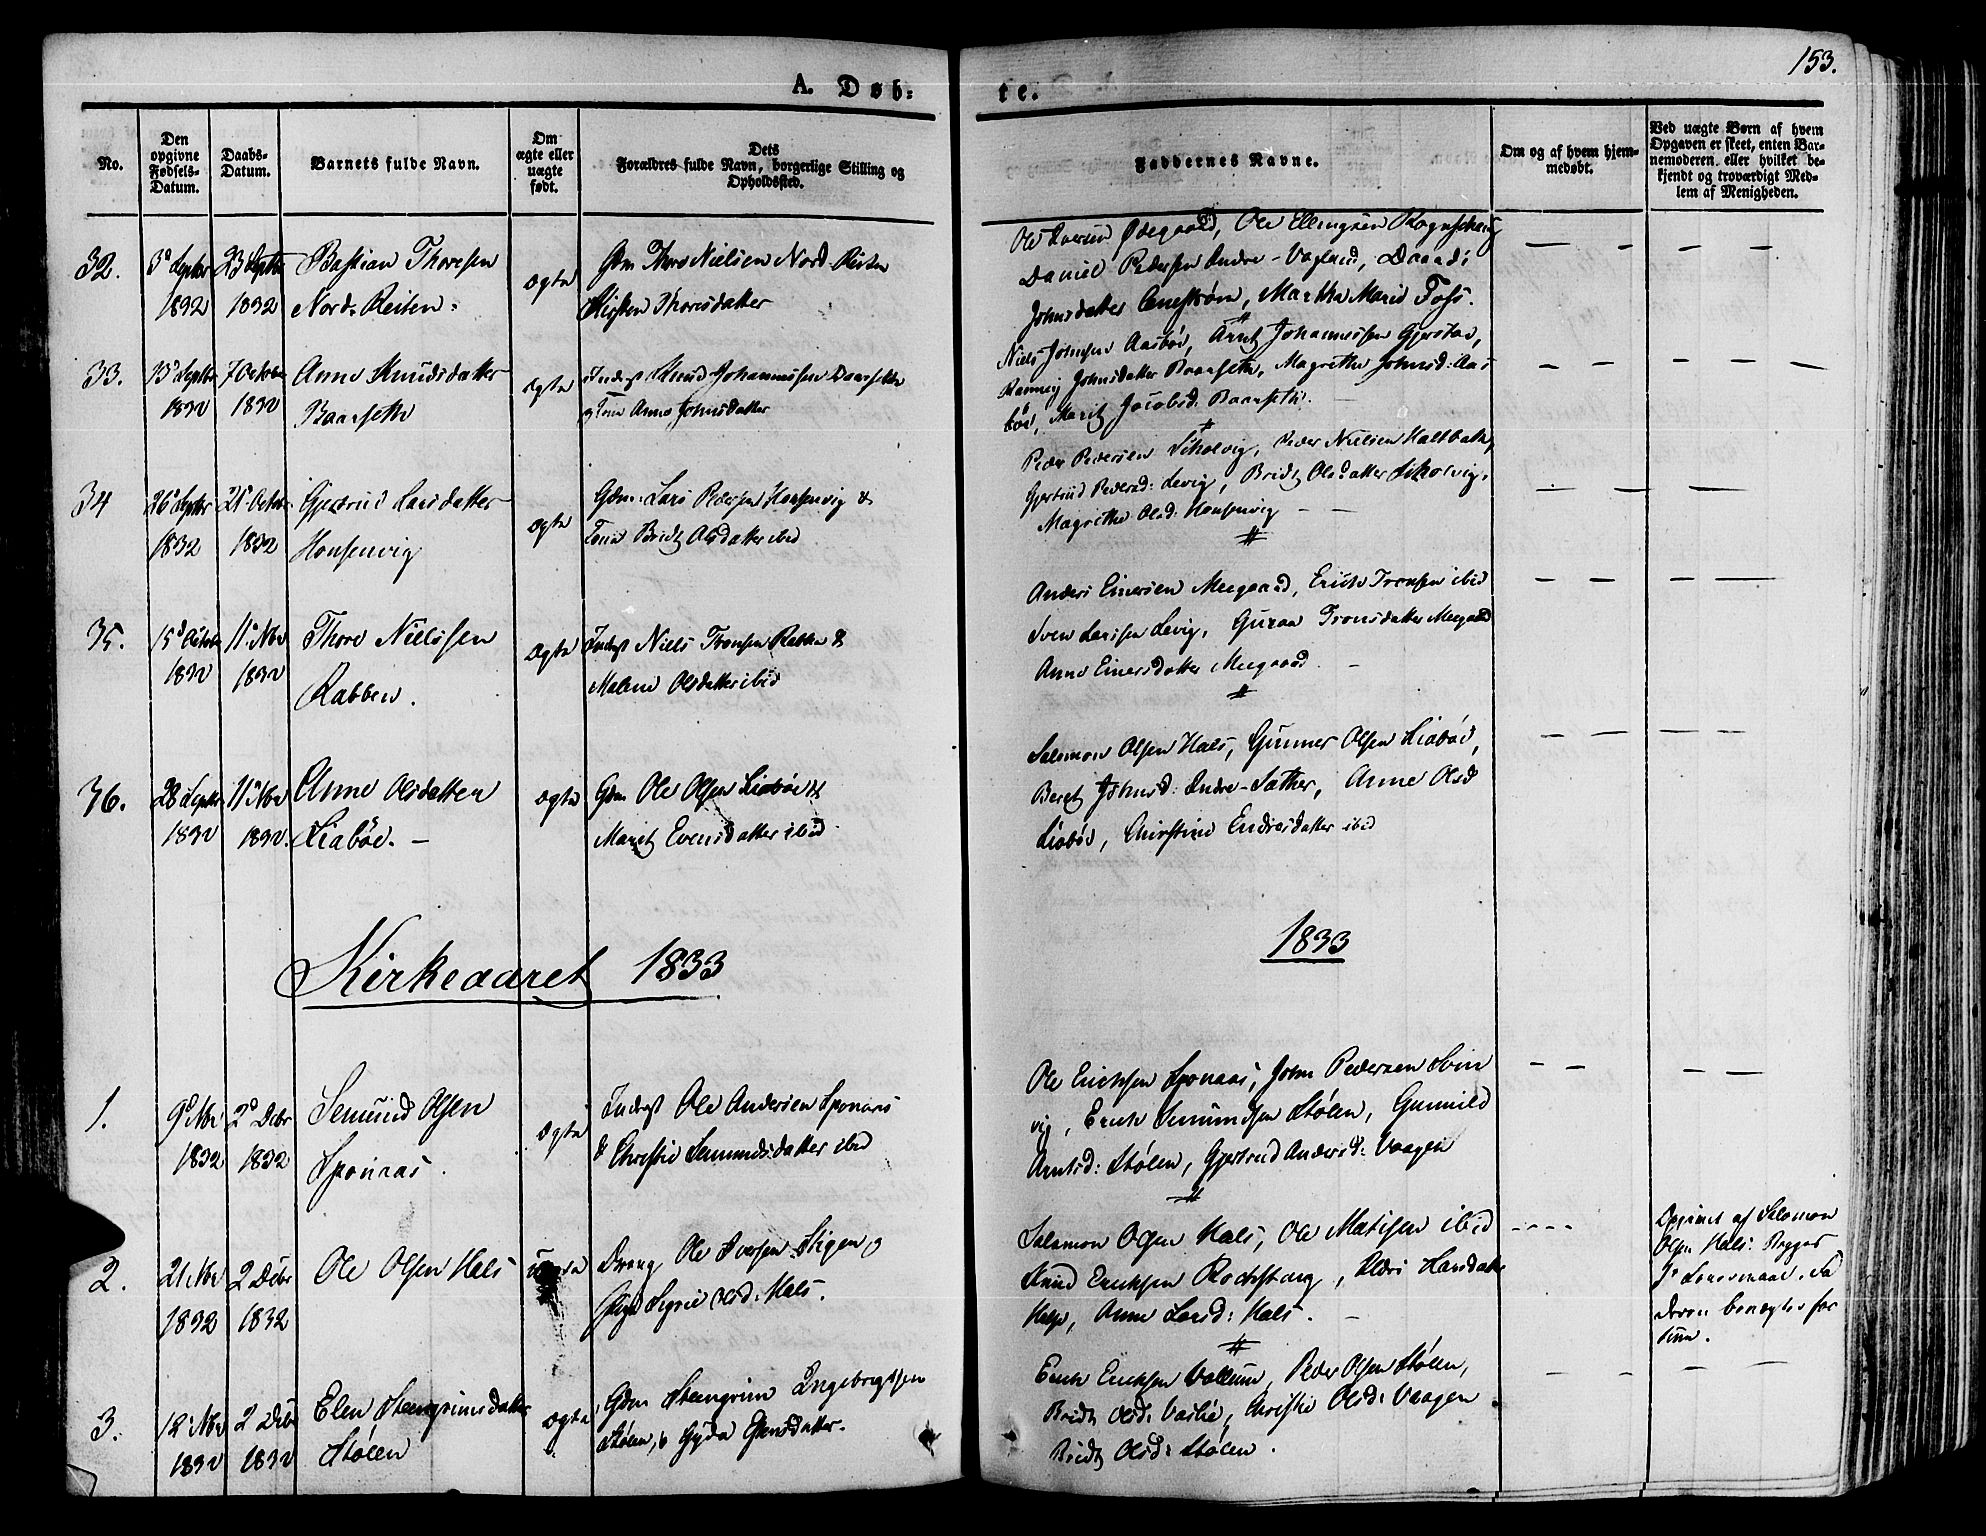 153.
A. Døb:
te.
No.
Den
opgivne
Fødsels-
Datum.
Daabs-
Datum.
Barnets fulde Navn.
Om
ægte eller
uægte
født.
Dets
Forældres fulde Navn, borgerlige Stilling og
Opholdssted.
Faddernes Navne.
Om og af hvem hjem-
medøbt.
Ved uægte Børn af hvem
Opgaven er skeet, enten Bar-
nemoderen, eller hvilket be-
kjendt og troværdigt Med-
lem af Menigheden.
32.
5 Septbr
1832
23 Septbr
1832
Bastian Thoresen
Nord-Reiten
ægte
Gdm Thore Nielsen Nord-Reiten
Kirsten Thoresdatter
Ole Iversen Ødegaard, Ole Ellingsen
Daniel Pedersen Indre-Vagland,
Johnsdatter, Martha Marie Foss.
33.
15 Septbr
1832
7 Octobr
1832
Anne Knudsdatter
Baarseth
ægte
Inderst Knud Johannessen Baarseth
og Kone Anne Johnsdatter
Niels Johnsen Aasbøe, Arnt Johannessen Gjerstad,
Johnsdatter Baarseth, Magrethe Johnsd: Aas
bøe, Marit Jacobsd: Baarseth.
34
26 Septbr
1832
21 Octobr
1832
Gjertrud Larsdatter
Honsenvig
ægte
Gdm: Lars Pedersen Honsenvig &
Kone Bridt Olsdatter ibid
Peder Pedersen, Peder Nielsen
Gjertrud Pedersd: Levig, Bridt Olsdatter
Magrethe Olsd: Honsenvig
35.
15 Octobr
1832
11 Nbr
1832
Thore Nielssen
Rabben.
ægte
Inderst Niels Tronsen Rabben &
Malene Olsdatter ibid
Anders Einersen Meegaard, Erich Tronsen ibid
Sven Larssen Levig, Guroe Tronsdatter Meegaard
Anne Einersdatter Meegaard
36.
28 Septbr
1832
11 Nbr
1832.
Anne Olsdatter
Liabøe. —
ægte
Gdm Ole Olsen Liabøe &
Marit Evensdatter ibid
Salomon Olsen Hals, Gunner Olsen Liabøe,
Beret Johnsd: Indre-Sæther, Anne Olsd
Liabøe, Christine Endresdatter ibid
Kirkeaaret 1833
1833
1.
9 Nbr
1832
2 Debr
1832
Semund Olsen
Sponaas.
ægte
Inderst Ole Andersen Sponaas
& Christie Semundsdatter ibid
Ole Erichsen Sponaas, John Pedersen Svin
vig, Erich Semundsen Stølen, Gunnild
Arntsd: Stølen, Gjertrud Andersd: Vaagen
2.
21 Nbr
1832
2 Debr
1832
Ole Olsen Hals
uægte
Dreng Ole Iversen Stigen, og
Pige Sigrie Olsd: Hals.
Salomon Olsen Hals, Ole Mathisen ibid
Knud Erichsen, Hansdatter
Hals, Anne Larsd: Hals.
af Salomon
Olsen Hals.
3.
12 Nbr
1832
2 Debr
1832
Elen Steengrimsdatter
Stølen
ægte
Gdm Steengrim Ingebrigtsen
Stølen, & Gyda
Erich Erichsen Vollum, Peder Olsen Stølen,
Bridt Olsd: Vaslie, Christie Olsd: Vaagen
Bridt Olsd: Stølen.